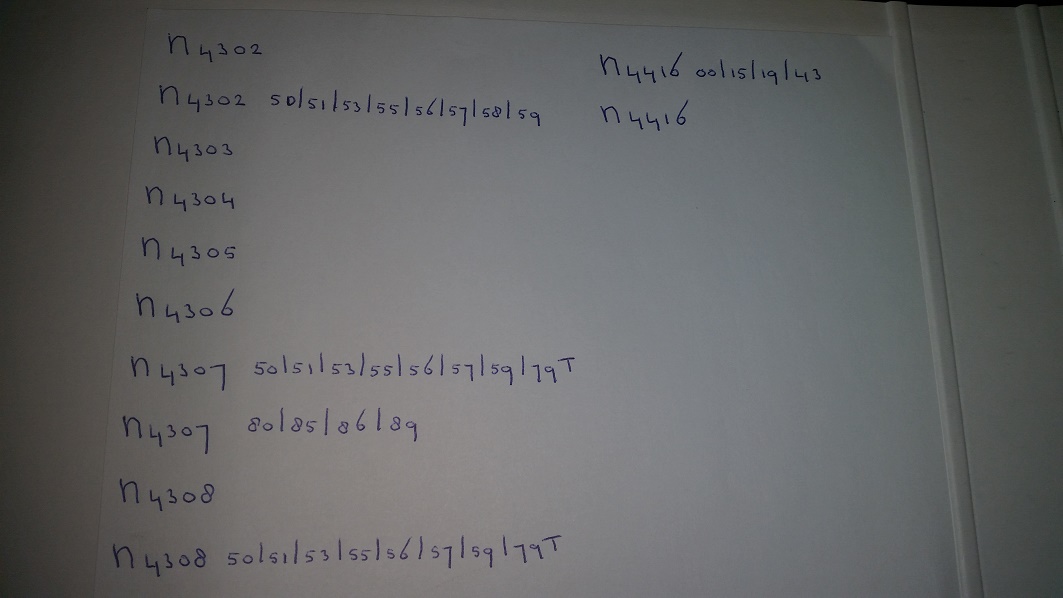 n4302
n4302 50/51/53/55/56/57/58/59
n4303
n4304
n4305
n4306
n4307 50/51/53/55/56/57/59/79T
n4307 80/85/86/89
n4308
n4308 50/51/53/55/56/57/59/79T
n4416 00/15/19/43
n4416